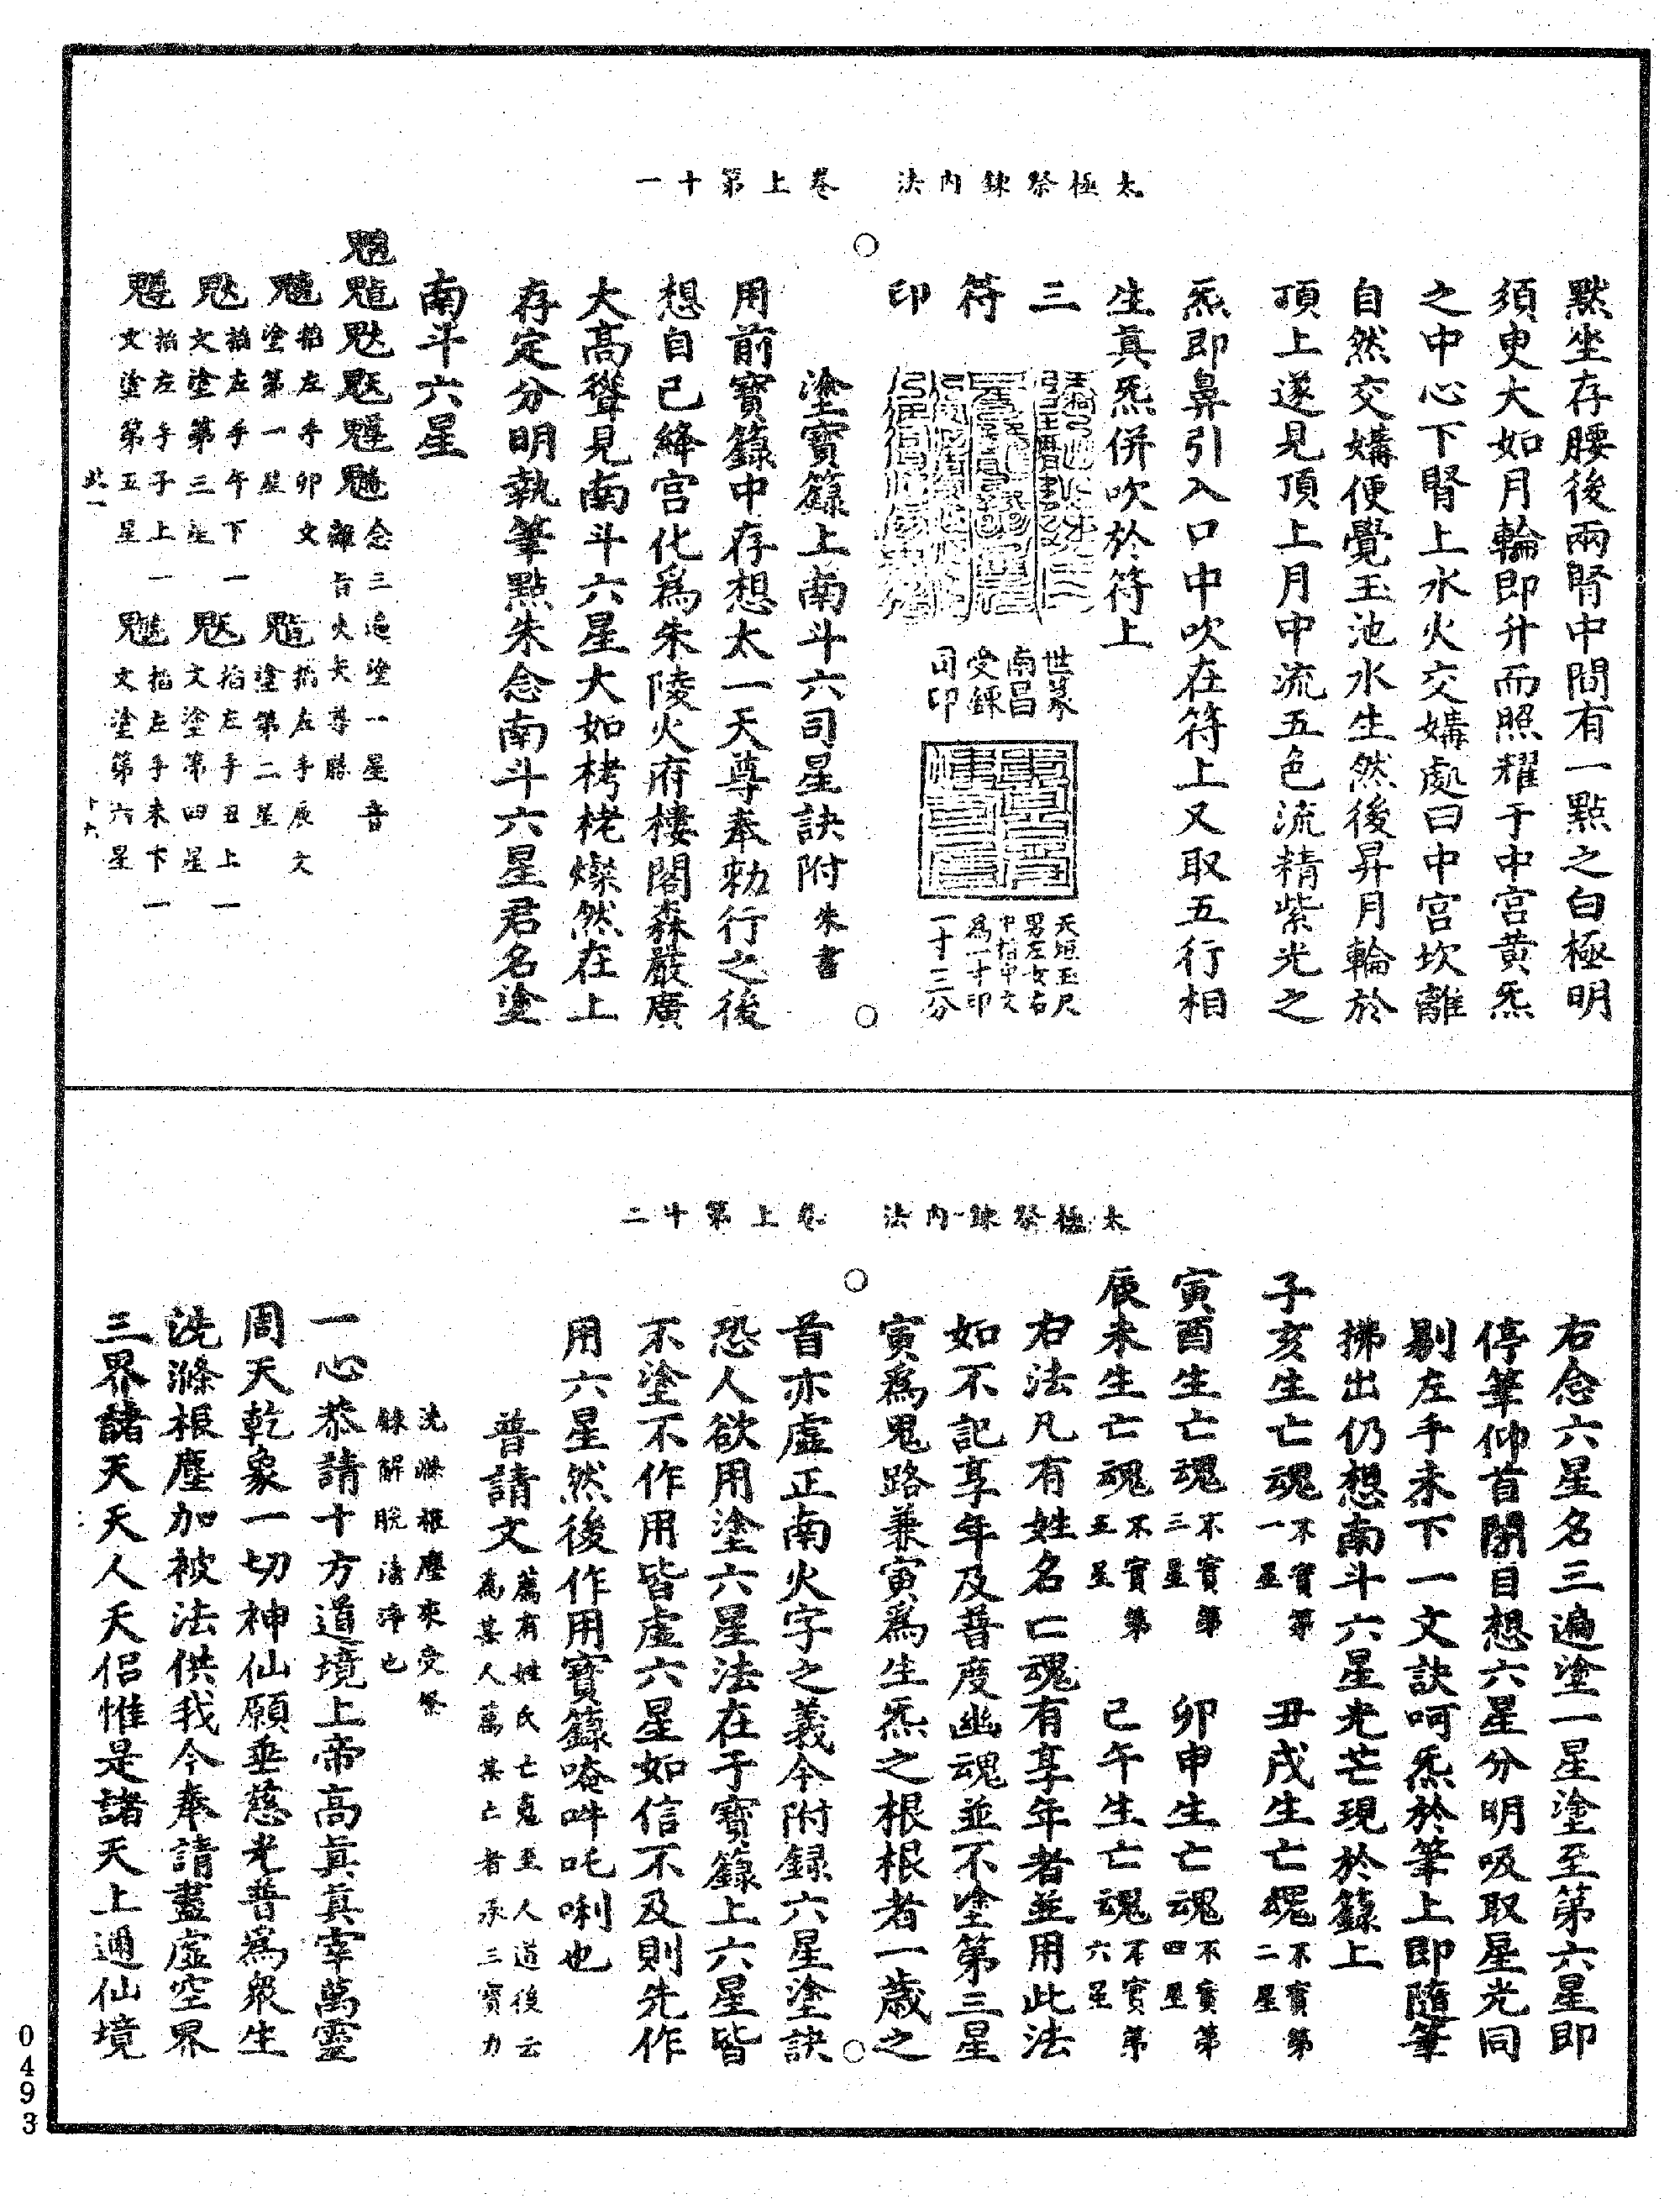 太極祭鍊内法　卷上第十一
默坐存腰後兩腎中間有一點之白極明
須臾大如月輪即升而照耀于中宫黄炁
之中心下腎上水火交媾處曰中宫坎離
自然交媾便覺玉池水生然後昇月輪於
頂上遂見頂上月中流五色流精紫光之
炁即鼻引入口中吹在符上又取五行相
生真炁併吹於符上
三
符
印
世篆
南昌
受鍊
司印
天垣玉尺
男左女右
中指中文
爲一寸印
一寸三分
塗寳籙上南斗六司星訣附朱書
用前寳籙中存想太一天尊奉勑行之後
想自己絳宫化爲朱陵火府樓閣森嚴廣
大高聳見南斗六星大如栲栳燦然在上
存定分明執筆點朱念南斗六星君名塗
南斗六星
念三遍塗一星音
離旨火夫尊勝
掐左手卯文
塗第一星
掐左手辰文
塗第二星
掐左手午下一
文塗第三星
掐左手丑上一
文塗第四星
掐左手子上一
文塗第五星
掐左手未下一
文塗第六星
十六
太極祭鍊内法　卷上第十二
右念六星名三遍塗一星塗至第六星即
停筆仰首閉目想六星分明吸取星光同
剔左手未下一文訣呵炁於筆上即隨筆
拂出仍想南斗六星光芒現於籙上
子亥生亡魂不實第一星　丑戌生亡魂不實第二星
寅酉生亡魂不實第三星　卯申生亡魂不實第四星
辰未生亡魂不實第五星　巳午生亡魂不實第六星
右法凡有姓名亡魂有享年者並用此法
如不記享年及普度幽魂並不塗第三星
寅爲鬼路兼寅爲生炁之根根者一歳之
首亦虚正南火字之義今附録六星塗訣
恐人欲用塗六星法在于寳籙上六星皆
不塗不作用皆虚六星如信不及則先作
用六星然後作用寳籙唵吽吒唎也
普請文薦有姓氏亡䰟至人道後云
爲某人薦某亡者承三寳力
洗滌根塵來受祭
鍊解脫清淨也
一心恭請十方道境上帝高真真宰萬靈
周天乾象一切神仙願垂慈光普爲衆生
洗滌根塵加被法供我今奉請盡虚空界
三界諸天天人天仙侣惟是諸天上通仙境
0493